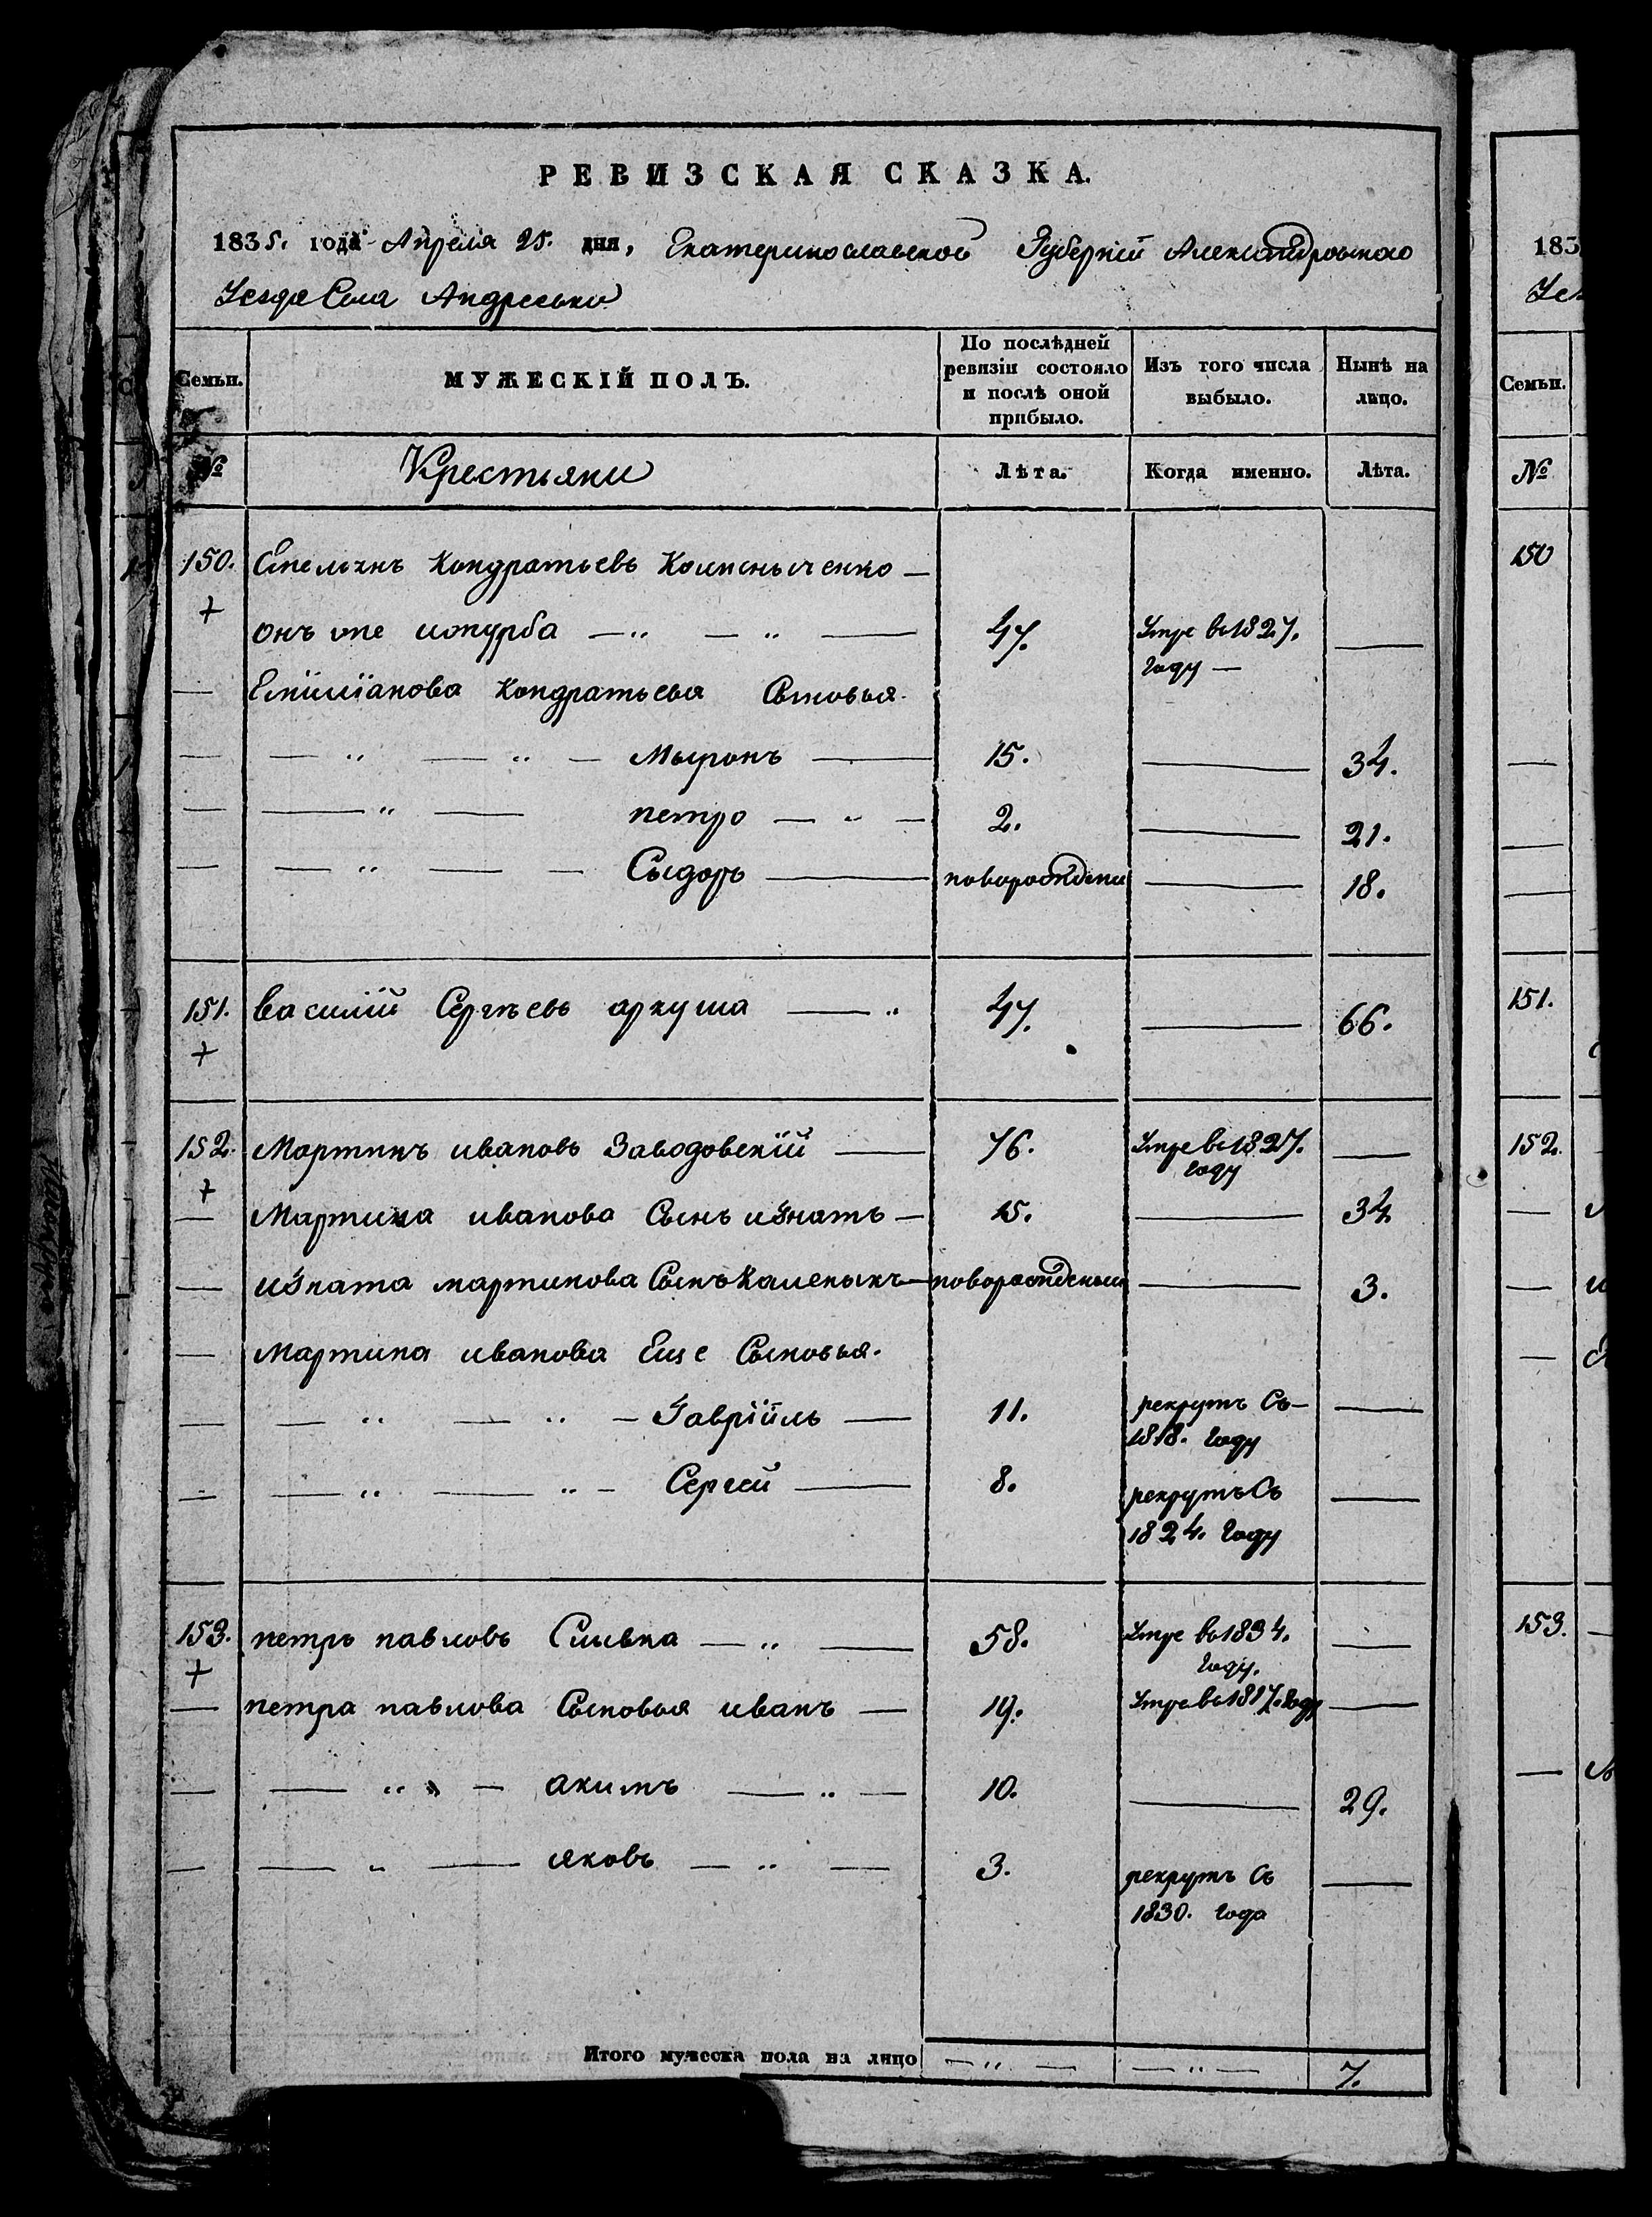 РЕВИЗСКАЯ СКАЗКА.
1835. года Апреля 25. дня, Екатеринославской Губерніи Александровскаго
Уезда Села Андреевки
Семьи.
МУЖЕСКІЙ ПОЛЪ.
По послѣдней ревизіи состояло и послѣ оной прибыло.
Изъ того числа выбыло.
Нынѣ на лицо.
№ Крестьяни Лѣта. Когда именно. Лѣта.
150. Емельянъ Кондратьевъ
онъ же 47. Умре в 1827.
году
Емиліанова Кондратьева Сыновья
Мыронъ 15. 34.
петро 2. 21.
Сыдоръ новорожденн 18.
151. василій Сергѣевъ аркуша 47. 66.
152. Мартинъ ивановъ Заводовскій 76. Умре в 1827.
году
Мартина иванова Сынъ игнатъ 15. 34.
игната мартинова Сынъ новорожденны 3.
Мартина иванова Еще Сыновья.
Гавріилъ 11. рекрутъ Съ
1818. году
Сергей 8. рекрутъ Съ
1824. году
153. петръ павловъ Сливка 58. Умре в 1834.
году.
петра павлова Сыновья иванъ 19. Умре в 1817. году
акимъ 10. 29.
яковъ 3. рекрутъ Съ
1830. года
Итого мужеска пола на лицо 7.
183
Семьи.
№
150
151.
152.
153.